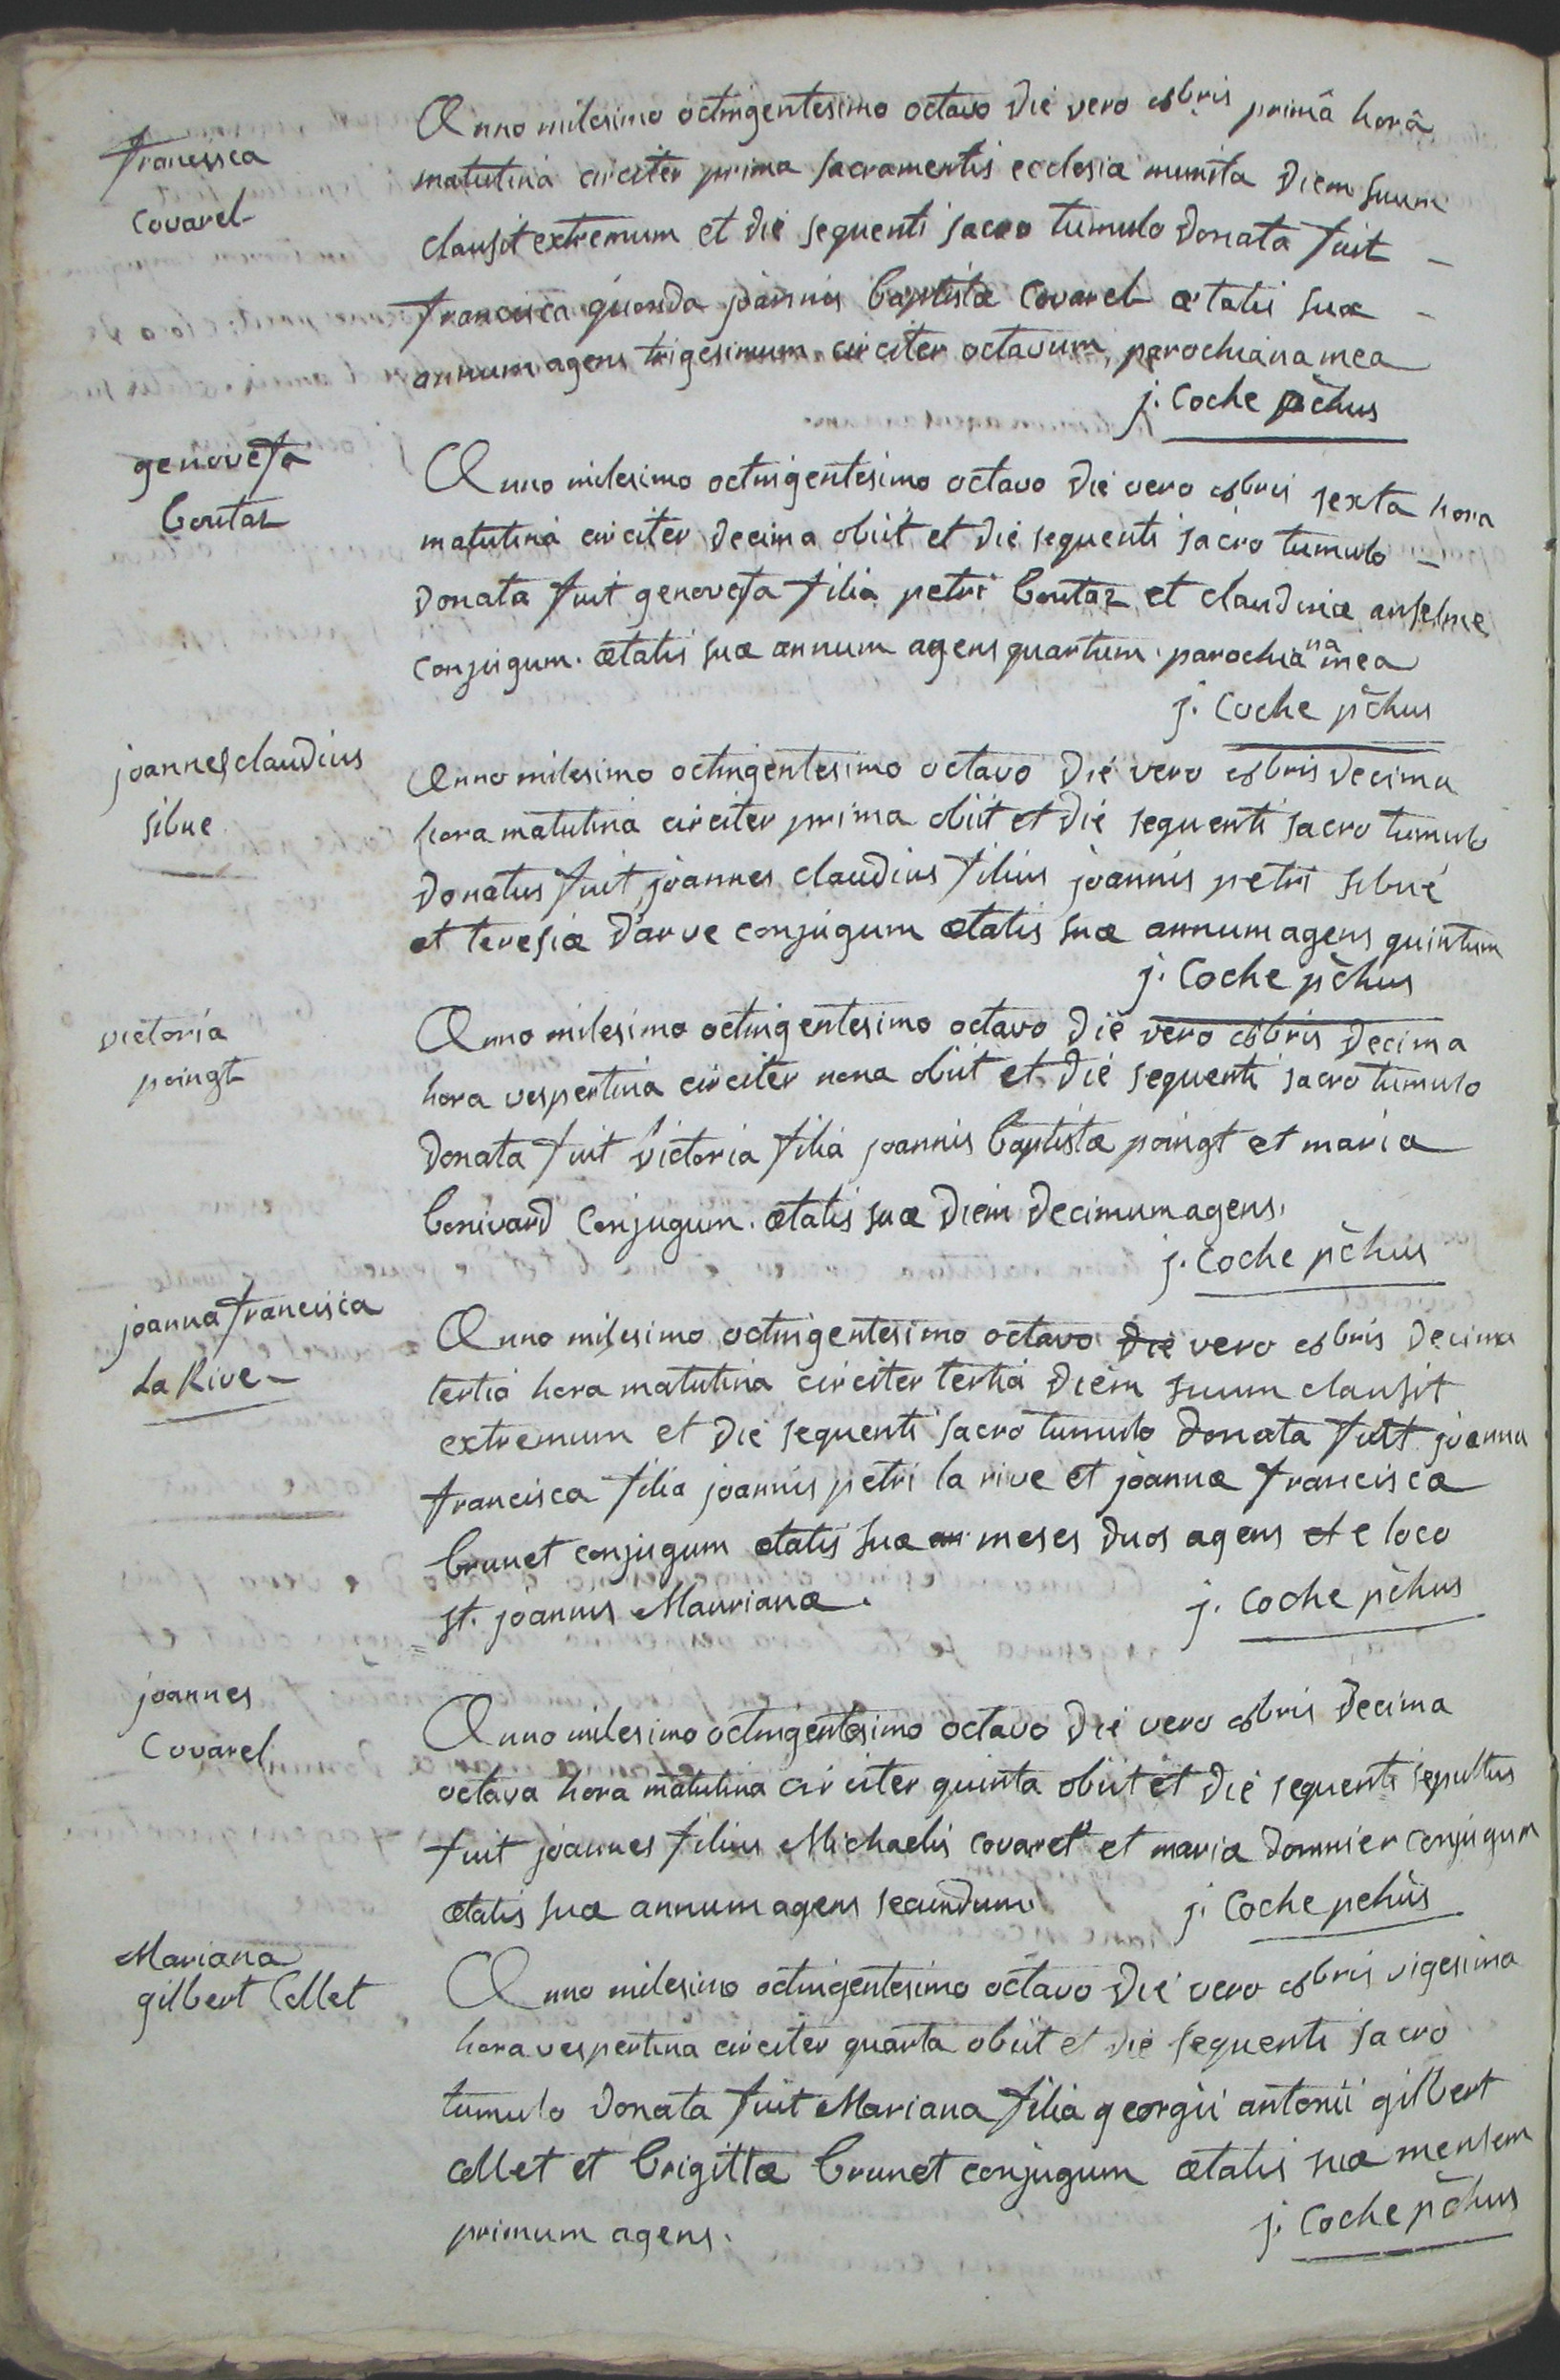 francisca
Covarel
Anno milesimo octingentesimo octavo die vero 8bris primâ horâ
matutina circiter prima sacramentis ecclesiæ munita diem suum
clausit extremum et die sequenti sacro tumulo donata fuit –
francisca quonda joannis baptistæ Covarel ætatis suæ –
annum agens trigesimum circiter octavum, parochiana mea
j. Coche pchus
genovefa
boutaz
Anno milesimo octingentesimo octavo die vero 8bris sexta hora
matutina circiter decima obiit et die sequenti sacro tumulo –
donata fuit genovefa filia petri boutaz et claudinæ anselme
conjugum. ætatis suæ annum agens quartum. parochiana mea
j. Coche pchus
joannes claudius
sibue
Anno milesimo octingentesimo octavo die vero 8bris decima
hora matutina circiter prima obiit et die sequenti sacro tumulo
donatus fuit joannes claudius filius joannis petri sibué
et teresiæ d'arve conjugum ætatis suæ annum agens quintum
j. Coche pchus
victoria
poingt
Anno milesimo octingentesimo octavo die vero 8bris decima
hora vespertina circiter nona obiit et die sequenti sacro tumulo
donata fuit victoria filia joannis baptistæ poingt et mariæ
bonivard conjugum. ætatis suæ diem decimum agens.
j. Coche pchus
joanna francisca
La Rive
Anno milesimo octingentesimo octavo die vero 8bris decima
tertia hora matutina circiter tertia diem suum clausit
extremum et die sequenti sacro tumulo donata fuit joanna
francisca filia joannis petri la rive et joannæ franciscæ
brunet conjugum ætatis suæ an meses duos agens et e loco
st. joannis Maurianæ.
j. Coche pchus
joannes
Covarel
Anno milesimo octingentesimo octavo die vero 8bris decima
octava hora matutina circiter quinta obiit et die sequenti sepultus
fuit joannes filius Michaelis covarel et mariæ domnier conjugum
ætatis suæ annum agens secundum
j. Coche pchus
Mariana
gilbert Collet
Anno milesimo octingentesimo octavo die vero 8bris vigesima
hora vespertina circiter quarta obiit et die sequenti sacro
tumulo donata fuit Mariana filia georgii antonii gilbert
collet et brigittæ brunet conjugum ætatis suæ mensem
primum agens.
j. Coche pchus